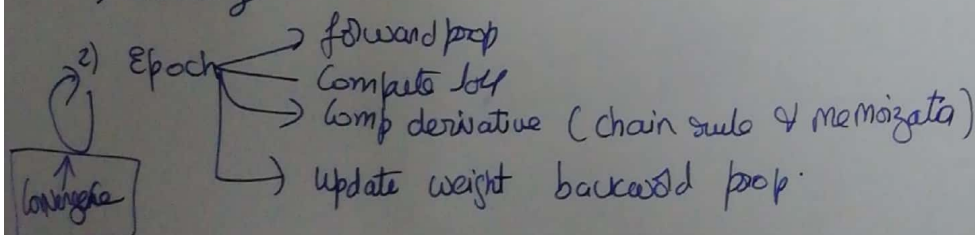 2) Epoch
forward prop
Compute loss
Comp derivative (chain rule & memoizata)
update weight backword prop.
Convergence